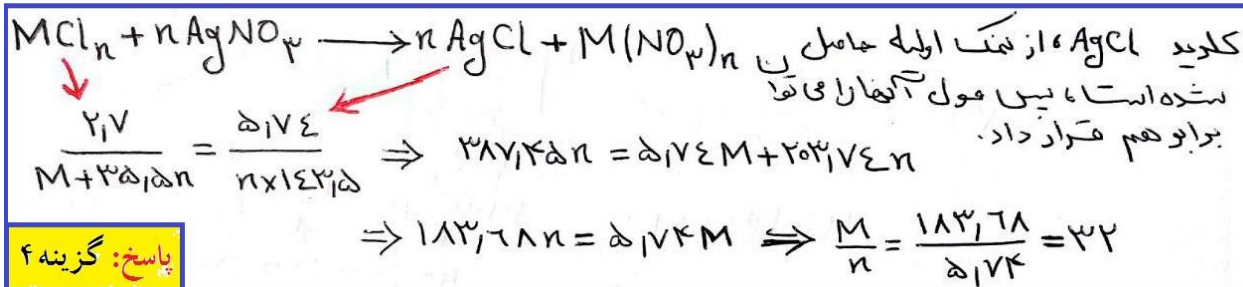 MCl_n + n AgNO_۳ → n AgCl + M(NO_۳)_n
کلرید AgCl، از نمک اولیه حاصل
شده است، پس مول آنها را می توان
برابر هم قرار داد.
۲,۷ / M+۳۵,۵n = ۵,۷٤ / n×۱٤۳,۵ ⇒ ۳۸۷,۴۵n = ۵,۷٤M + ۲۰۳,۷٤n
⇒ ۱۸۳,۶۸n = ۵,۷۴M ⇒ M/n = ۱۸۳,۶۸ / ۵,۷۴ = ۳۲
پاسخ: گزینه ۴